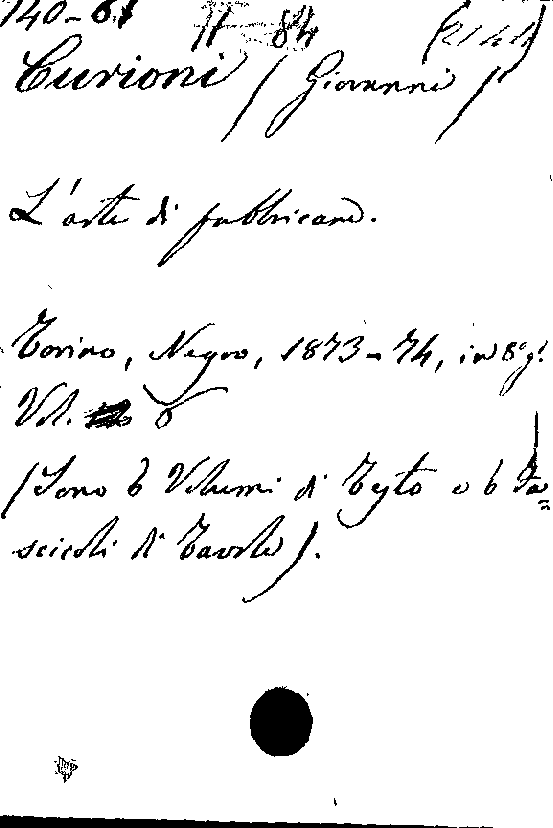 140-61 11 84 (2144)
Curioni (Giovanni)
L'arte di fabbricare.
Torino, Negro, 1873-74, in 8º g!
Vol. 6
(Sono 6 Volumi di Testo e 6 Fa=
scicoli di Tavole).